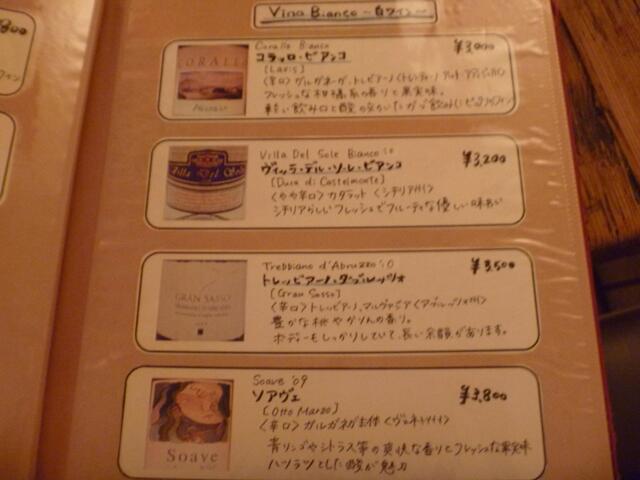 Vino Bianco ~白ワイン~
CORALLO
Corallo Bianco
¥3,000
コラッロ・ビアンコ
[Lavis]
フレッシュな柑橘系の香りと果実味。
Villa Del Sole Bianco '10
¥3,200
ヴィッラ・デル・ソーレ・ビアンコ
[Duca di Castelmonte]
<やや辛口> カタラット <シチリア州>
シチリアらしいフレッシュでフルーティな優しい味わい
GRAN SASSO
Trebbiano d'Abruzzo '10
¥3,500
トレッビアーノ・ダブルッツォ
[Gran Sasso]
<辛口> トレッビアーノ、マルヴァジア <アブルッツォ州>
豊かな桃やかりんの香り。
ボディーもしっかりしていて、長い余韻があります。
Soave
Soave '09
¥3,800
ソアヴェ
[Otto Marzo]
<辛口> ガルガネガ主体 <ヴェネト州>
青リンゴやシトラス等の爽快な香りとフレッシュな果実味
ハツラツとした酸が魅力